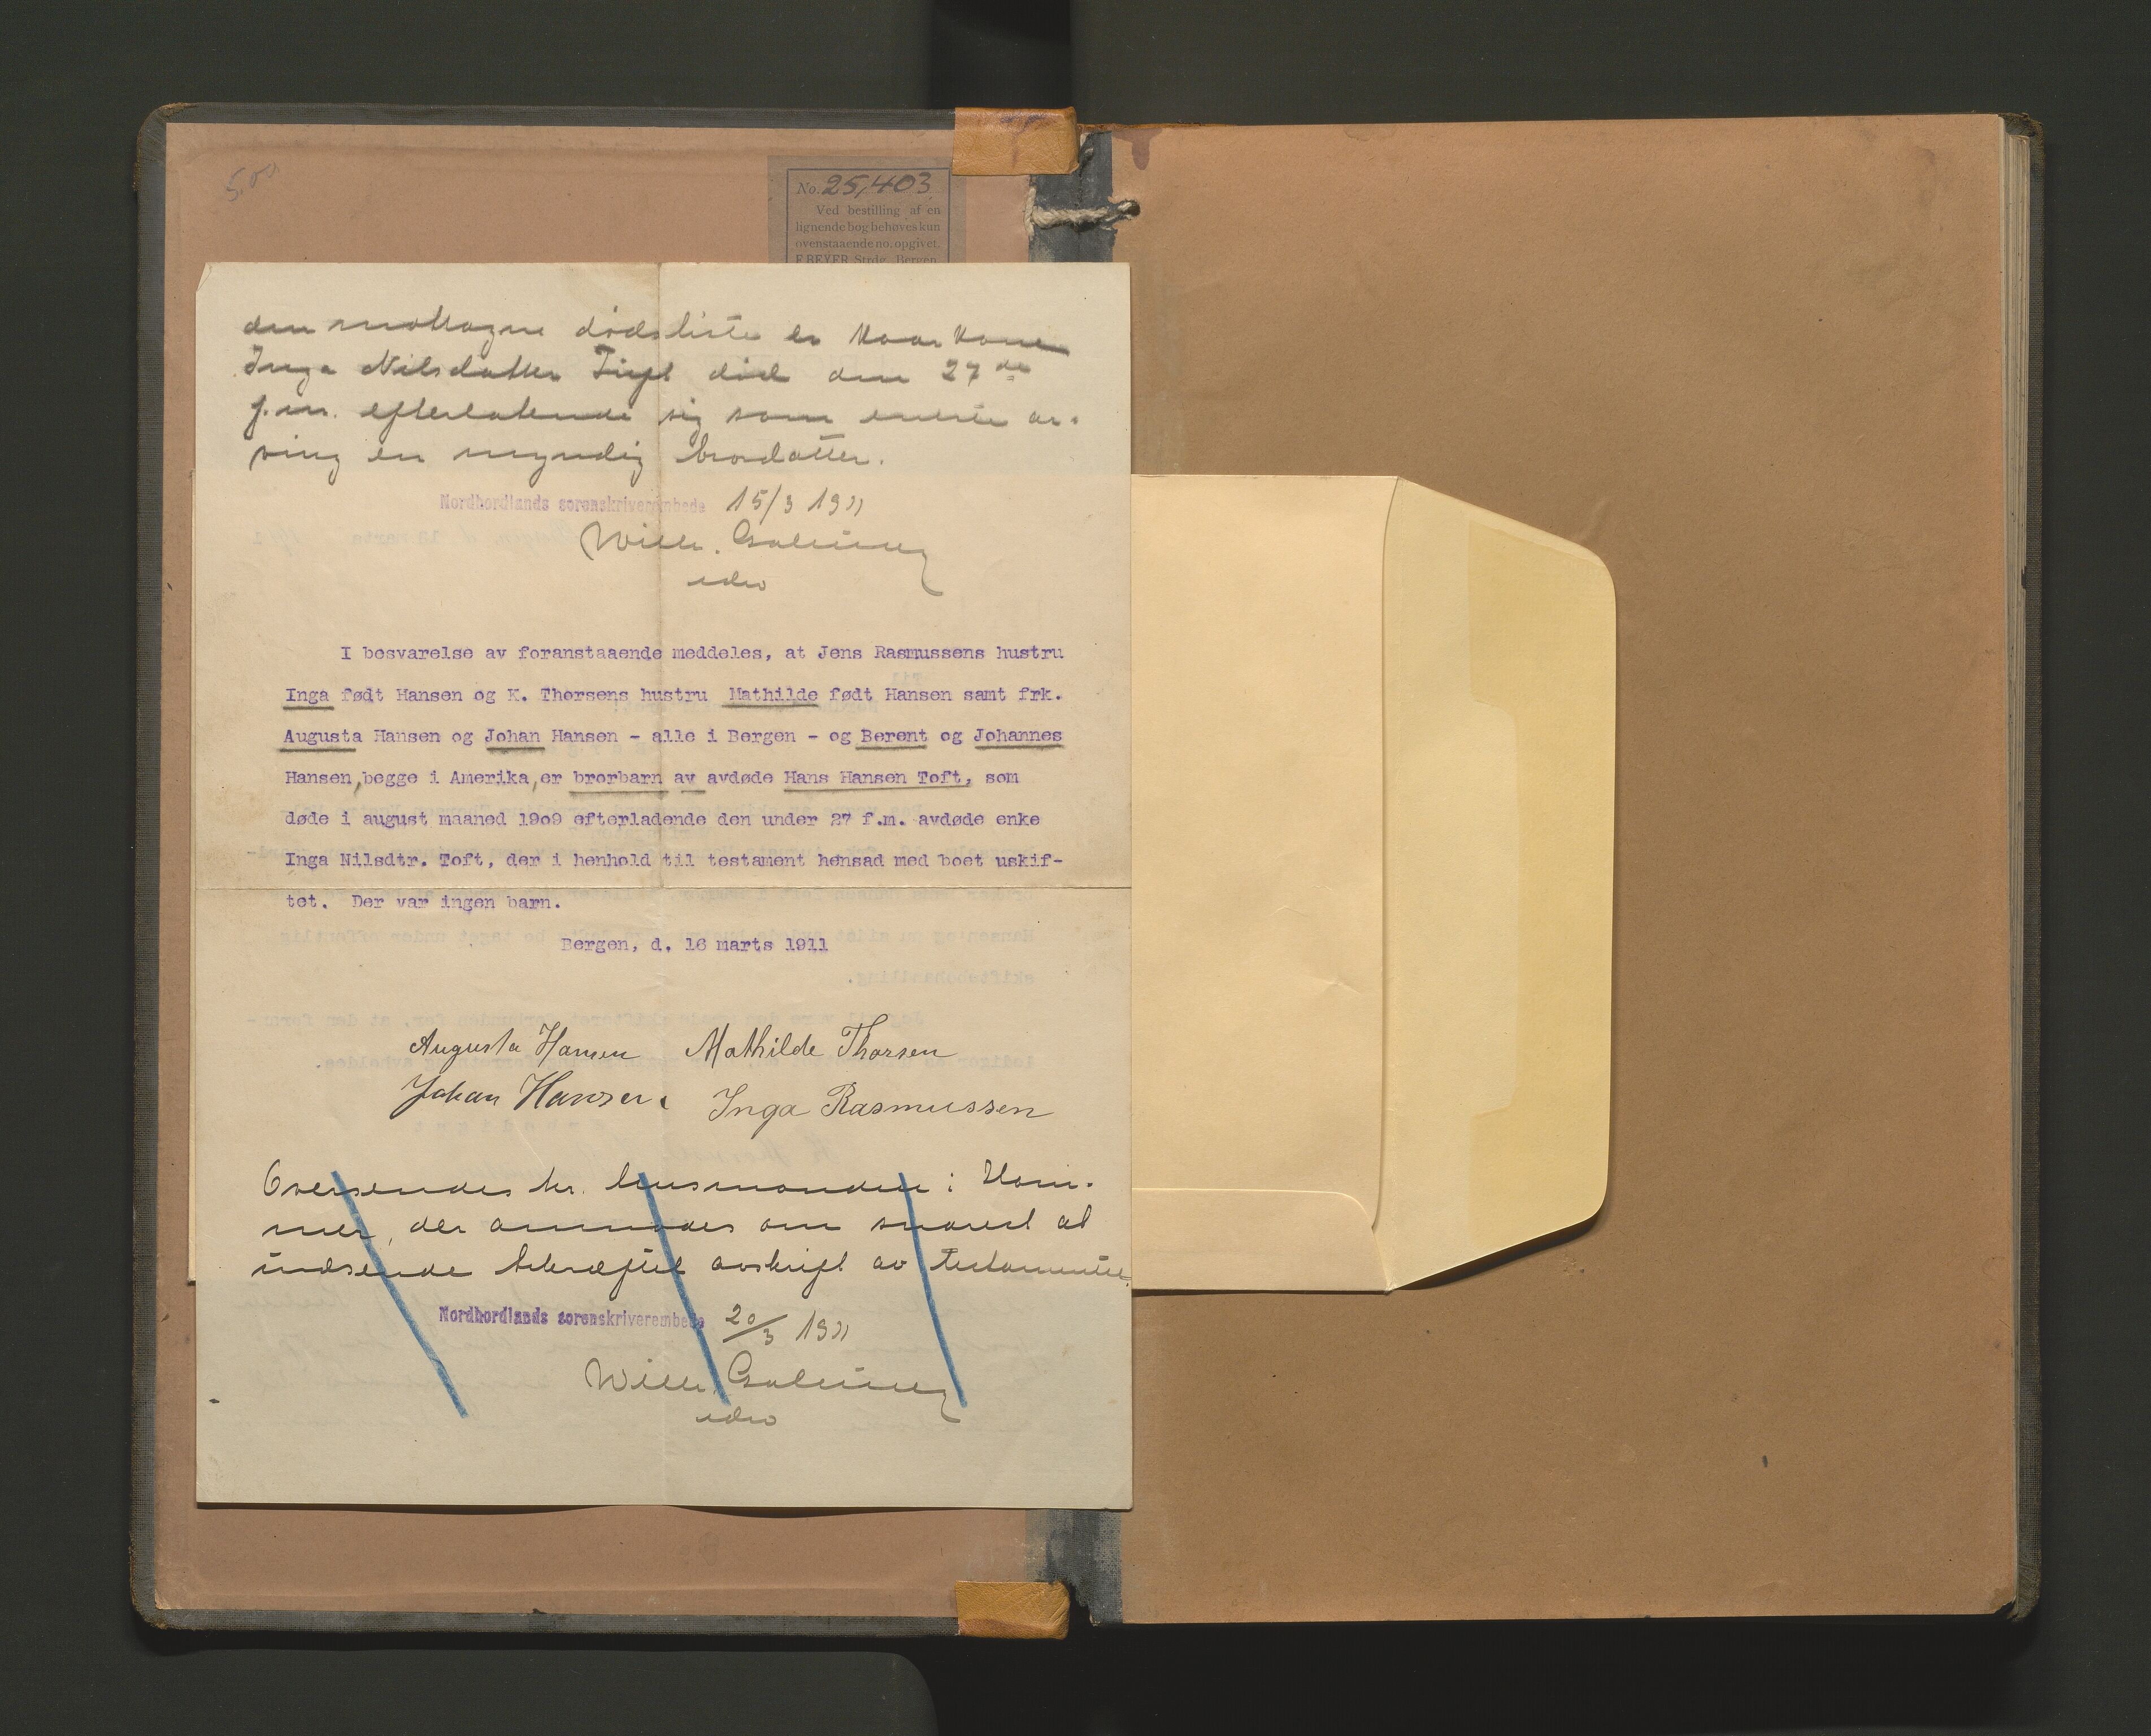 5.00
No. 25,403
Ved bestilling af en
lignende bog behøves kun
ovenstaaende no. opgivet.
F. BEYER Strdg. Bergen
den mottagne dødsliste er kaarkone
Inga Nilsdatter Tuft død den 27de
f.m. efterlatende sig som eneste ar-
ving en myndig brordatter.
Nordhordlands sorenskriverembede 15/3 1911
Willh.
edro
I besvarelse av foranstaaende meddeles, at Jens Rasmussens hustru
Inga født Hansen og K. Thorsens hustru Mathilde født Hansen samt frk.
Augusta Hansen og Johan Hansen - alle i Bergen - og Berent og Johannes
Hansen, begge i Amerika, er brorbarn av avdøde Hans Hansen Toft, som
døde i august maaned 19o9 efterladende den under 27 f.m. avdøde enke
Inga Nilsdtr. Toft, der i henhold til testament hensad med boet uskif-
tet. Der var ingen barn.
Bergen, d. 16 marts 1911
Augusta Hansen Mathilde Thorsen
Johan Hansen. Inga Rasmussen
Oversendes hr. lensmanden i Ham-
mer, der anmodes om snarest at
indsende bekræftet avskrift av testamentet.
Nordhordlands sorenskriverembede 20/3 1911
Willh.
edro